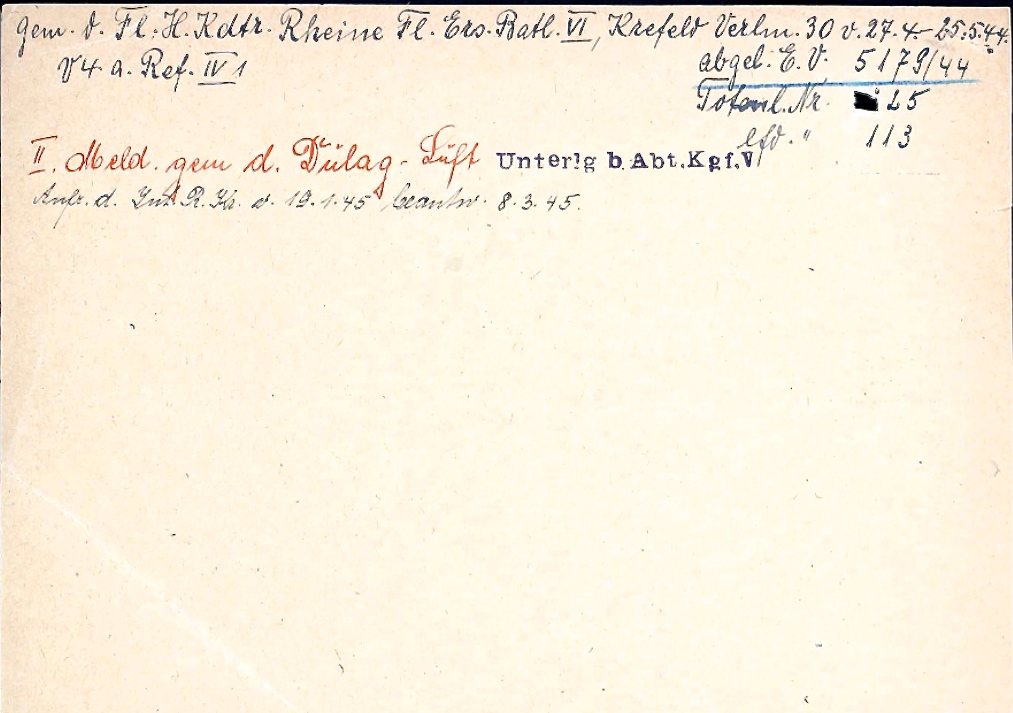 gem. d. Fl. H. Kdtr. Rheine Fl. Ers. Batl. VI, Krefeld Verlm. 30 v. 27.4.-25.5.44.
V4 a. Ref. IV 1
abgel. E. V. 5179/44
Totenl. Nr. 25
lfd. " 113
II. Meld. gem d. Dulag-Luft Unterlg b. Abt. Kgf. V
Anfr. d. Int. R. Kr. v. 19.1.45 beantw. 8.3.45.